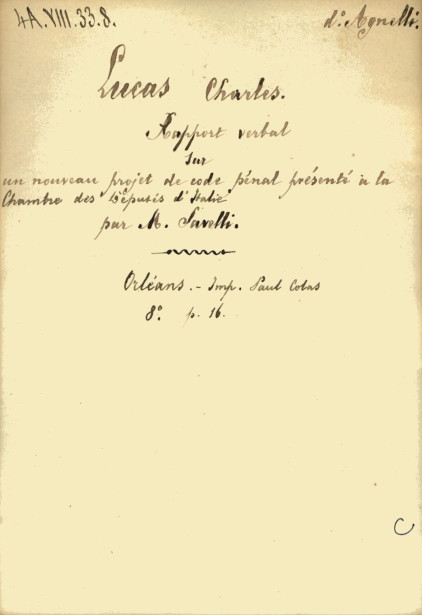 4A.VIII.33.8.
d.º Agnelli.
Lucas Charles.
Rapport verbal
sur
un nouveau projet de code pénal présenté à la
Chambre des Députés d'Italie
par M. Savelli.
Orléans. - Imp. Paul Colas
8º. p. 16.
C